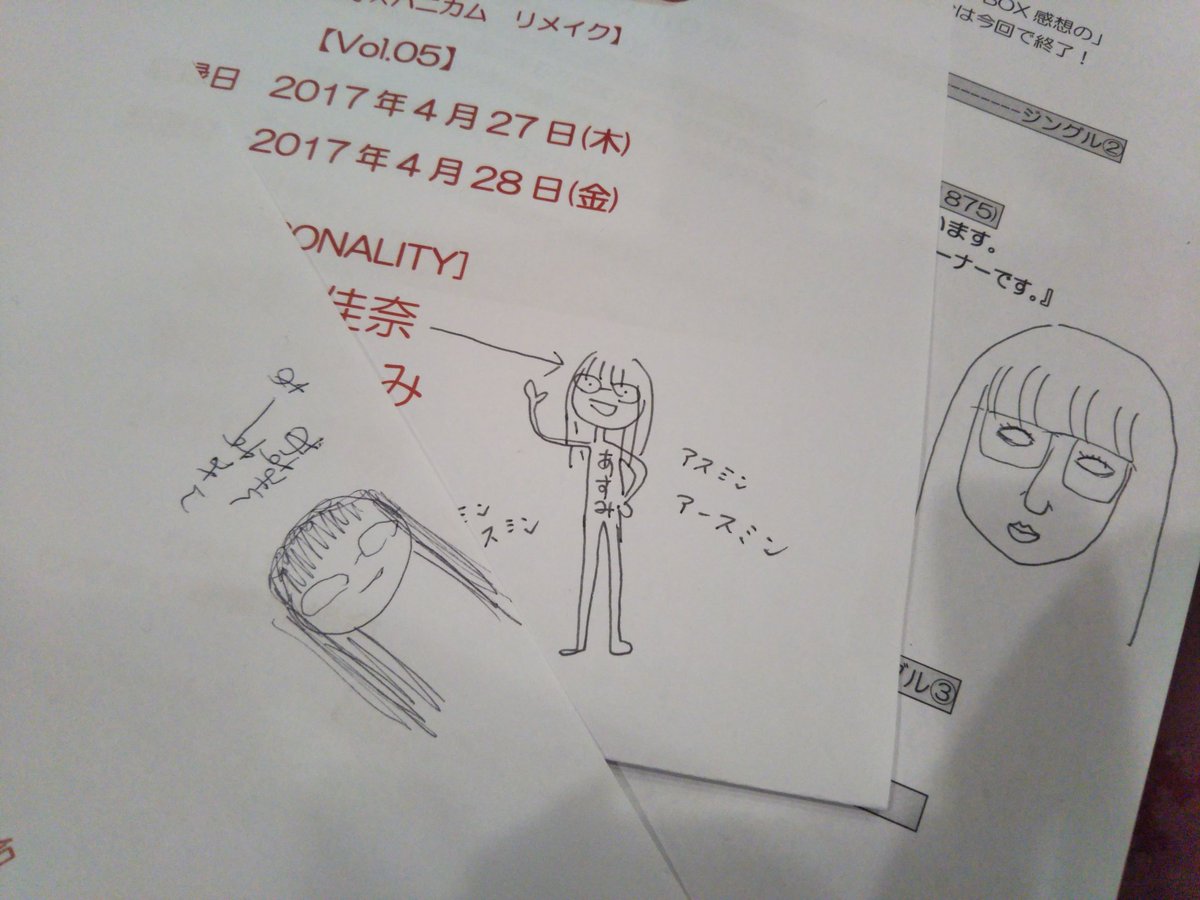 スハニカム リメイク】
【Vol.05】
日 2017年4月27日(木)
2017年4月28日(金)
ONALITY]
佳奈
み
あすみ
アスミン
アースミン
ミン
スミン
BOX感想の」
は今回で終了！
ジングル②
875)
います。
ーナーです。』
グル③